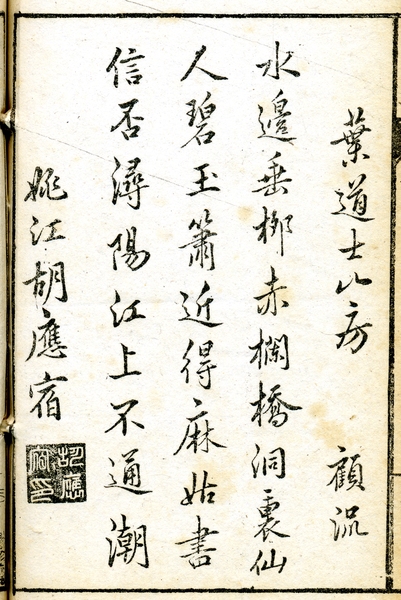 葉道士山房　顧況
水邊垂栁赤欄橋洞裏仙
人碧玉簫近得麻姑書
信否潯陽江上不通潮
姚江胡應宿
胡應宿印